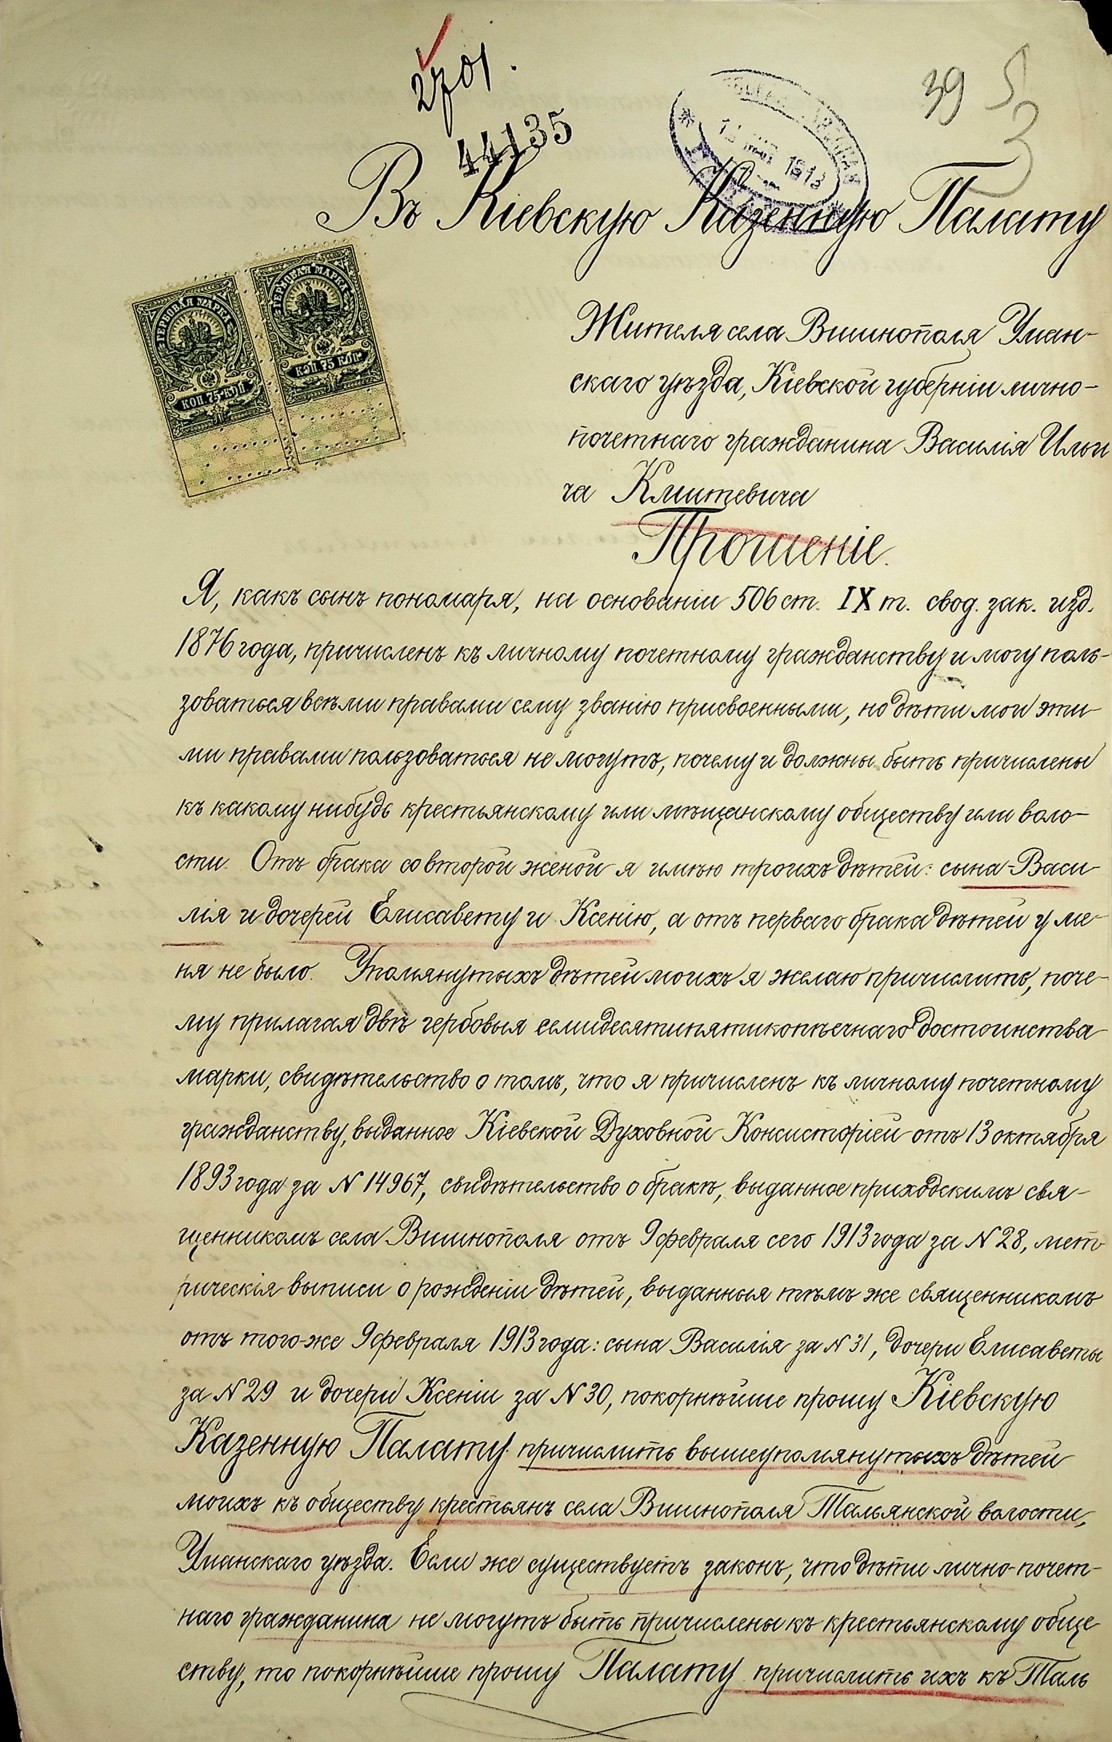 2701.
44135
39
3
1913
Въ Кіевскую Казенную Палату
ГЕРБОВАЯ МАРКА
КОП 75 КОП
ГЕРБОВАЯ МАРКА
КОП 75 КОП
Жителя села Вишнополя Уман-
скаго уѣзда, Кіевской губерніи лично-
почетнаго гражданина Василія Ильи
ча Кмитевича
Прошеніе.
Я, какъ сынъ пономаря, на основаніи 506 ст. IX т. свод. зак. изд.
1876 года, причисленъ къ личному почетному гражданству и могу поль-
зоваться всѣми правами сему званію присвоенными, но дѣти мои эти-
ми правами пользоваться не могутъ, почему и должны быть причислены
къ какому нибудь крестьянскому или мѣщанскому обществу или воло-
сти. Отъ брака со второй женой я имѣю троихъ дѣтей: сына-Васи
лія и дочерей Елисавету и Ксенію, а отъ перваго брака дѣтей у ме-
ня не было. Упомянутыхъ дѣтей моихъ я желаю причислить, поче-
му прилагая двѣ гербовыя семидесятипятикопѣечнаго достоинства
марки, свидѣтельство о томъ, что я причисленъ къ личному почетному
гражданству, выданное Кіевской Духовной Консисторіей отъ 13 октября
1893 года за N 14967, свидѣтельство о бракѣ, выданное приходскимъ свя-
щенникомъ села Вишнополя отъ 9 февраля сего 1913 года за N 28, мет-
рическія выписи о рожденіи дѣтей, выданныя тѣмъ же священникомъ
отъ того-же 9 февраля 1913 года: сына Василія за N 31, дочери Елисаветы
за N 29 и дочери Ксеніи за N 30, покорнѣйше прошу Кіевскую
Казенную Палату причислить вышеупомянутыхъ дѣтей
моихъ къ обществу крестьянъ села Вишнополя Тальянской волости,
Уманскаго уѣзда. Если же существуетъ законъ, что дѣти лично-почет-
наго гражданина не могутъ быть причислены къ крестьянскому обще
ству, то покорнѣйше прошу Палату причислить ихъ къ Таль